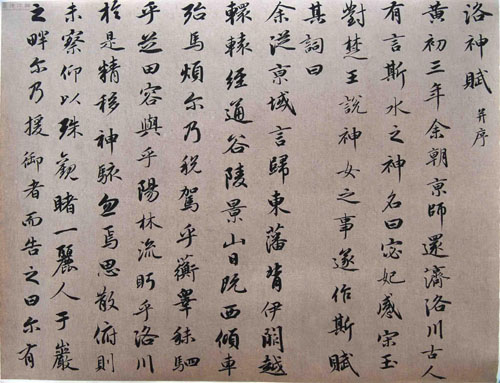 洛神賦 并序
黃初三年余朝京師還濟洛川古人
有言斯水之神名曰宓妃感宋玉
對楚王說神女之事遂作斯賦
其詞曰
余從京域言歸東藩背伊闕越
轘轅經通谷陵景山日既西傾車
殆馬煩尔乃稅駕乎蘅皋秣駟
乎芝田容與乎陽林流眄乎洛川
於是精移神駭忽焉思散俯則
未察仰以殊觀睹一麗人于巖
之畔尔乃援御者而告之曰尔有